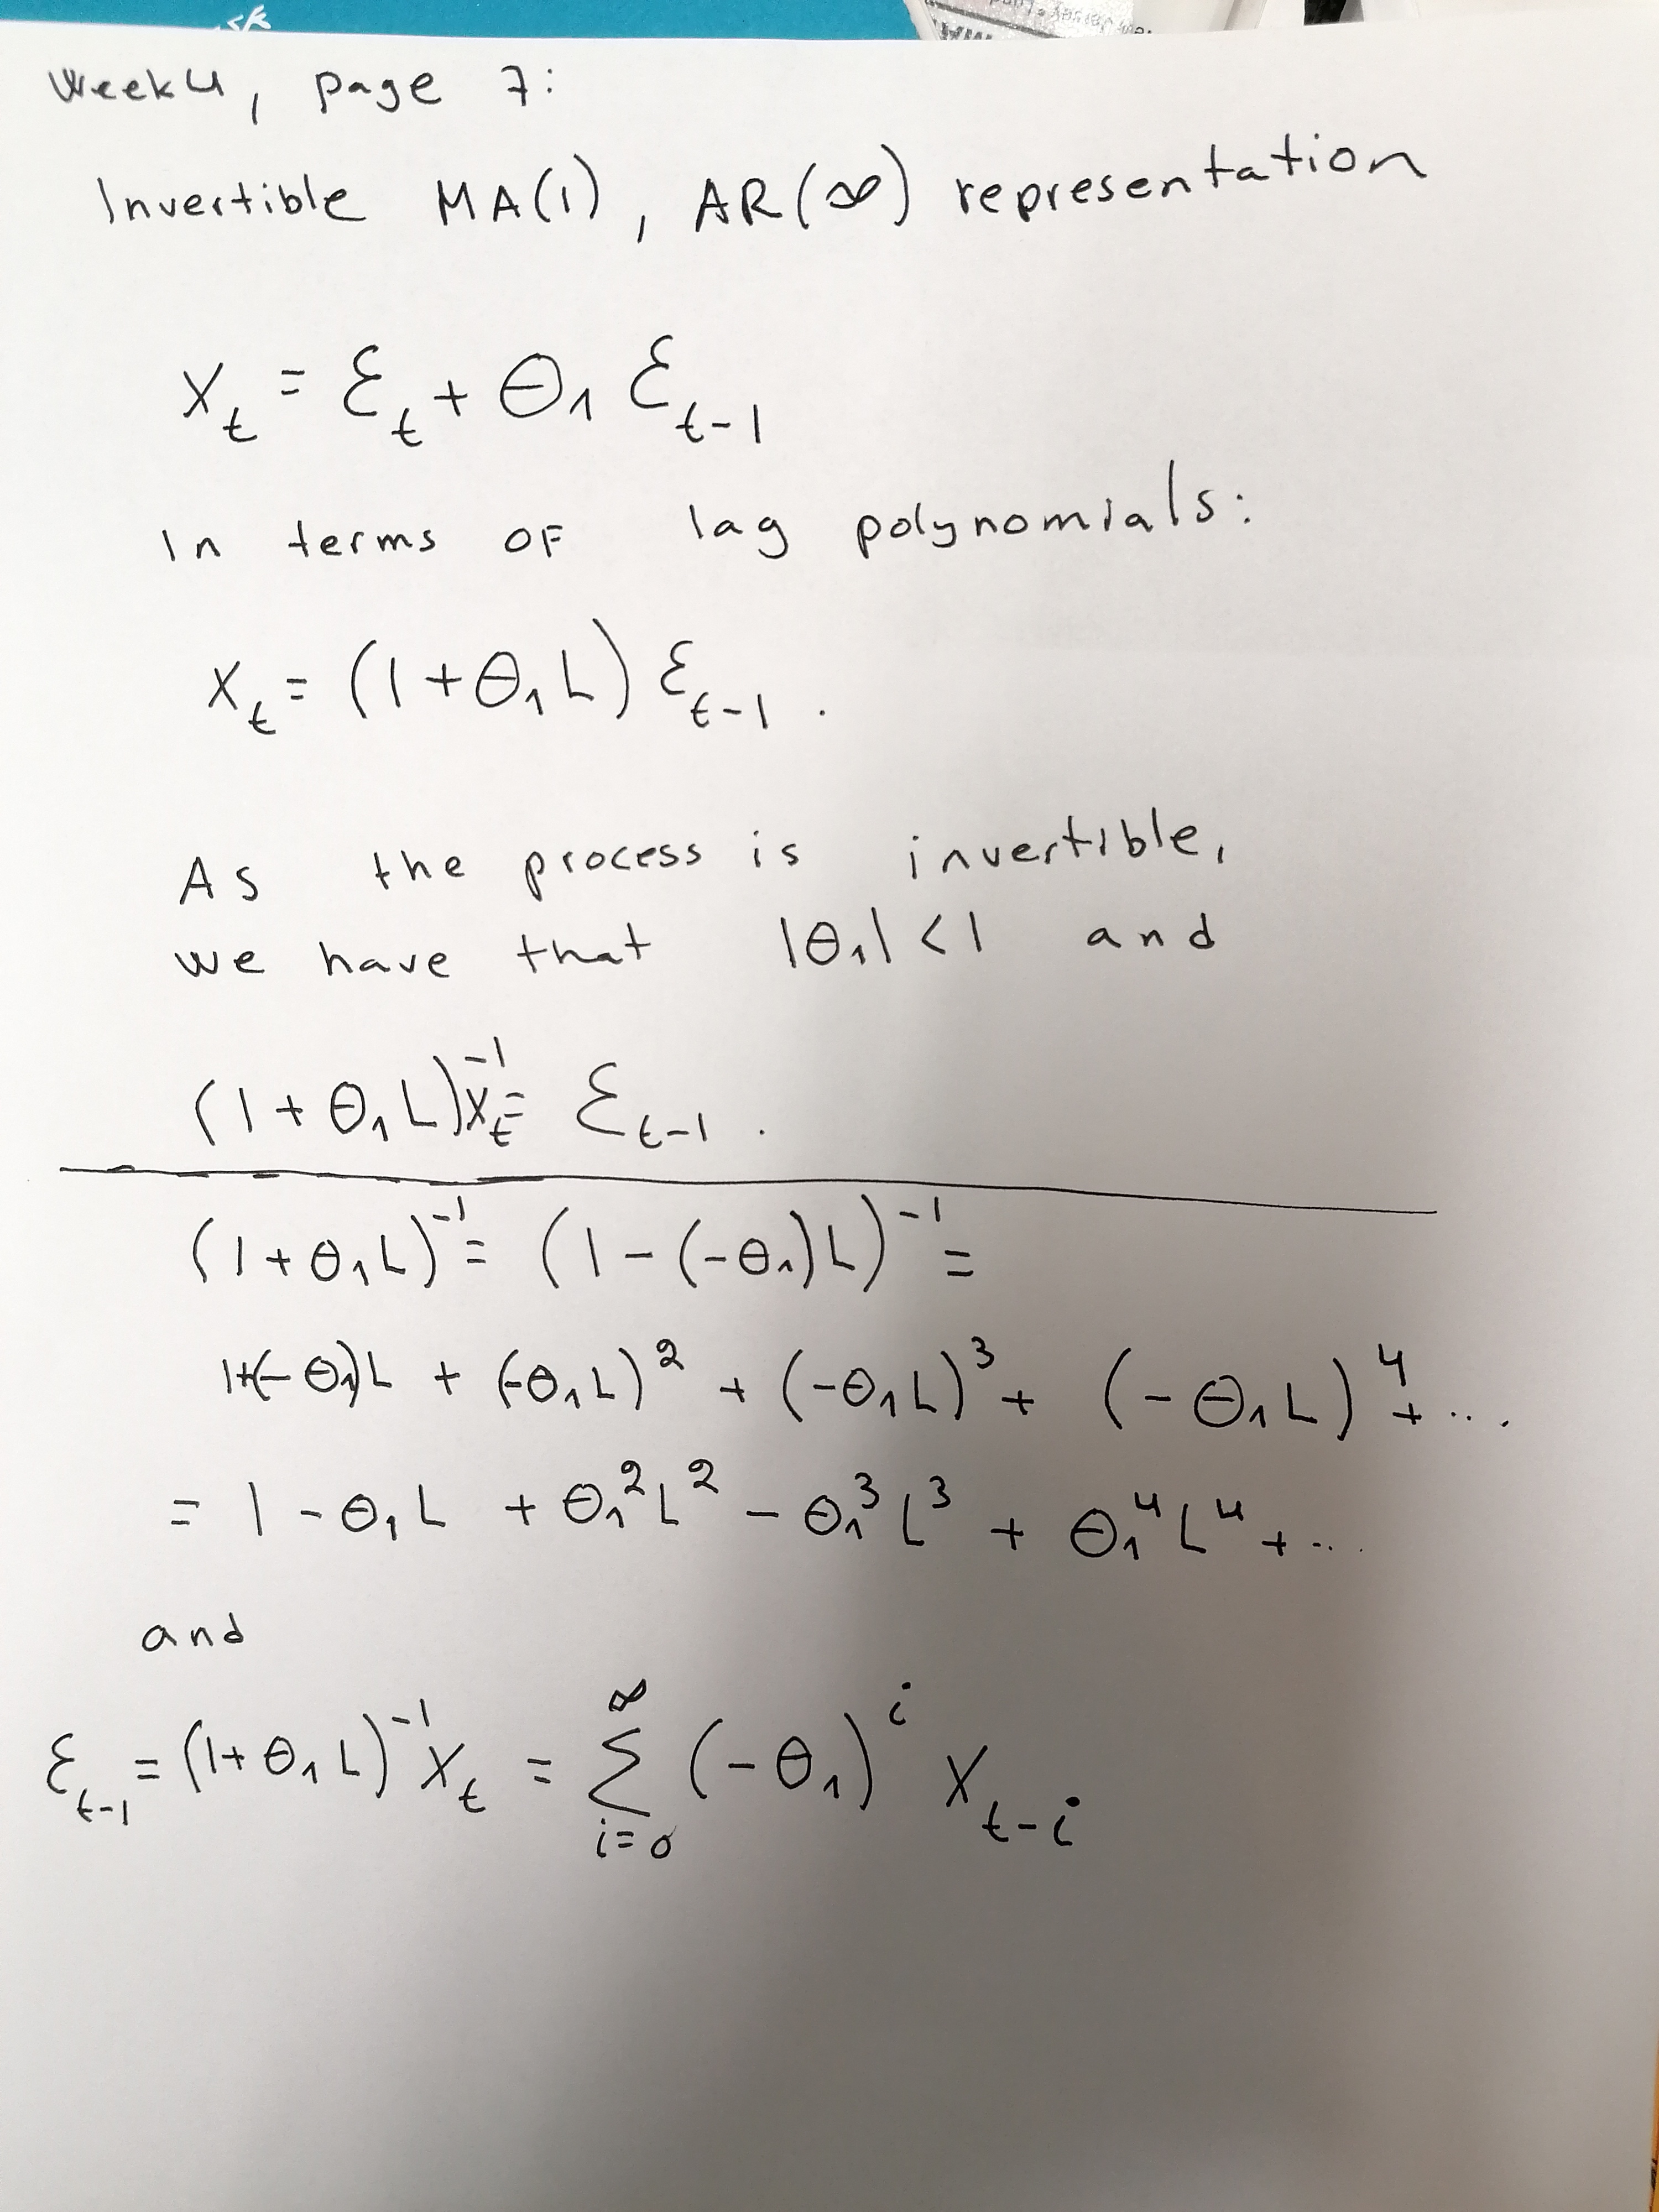 Week 4, page 7:
Invertible MA(1), AR(∞) representation
X_t = ε_t + θ_1 ε_{t-1}
In terms of lag polynomials:
X_t = (1 + θ_1 L) ε_{t-1} .
As the process is invertible,
we have that |θ_1| < 1 and
(1 + θ_1 L)^{-1} X_t = ε_{t-1} .
(1 + θ_1 L)^{-1} = (1 - (-θ_1) L)^{-1} =
1+(-θ_1)L + (-θ_1 L)^2 + (-θ_1 L)^3 + (-θ_1 L)^4 + ...
= 1 - θ_1 L + θ_1^2 L^2 - θ_1^3 L^3 + θ_1^4 L^4 + ...
and
ε_{t-1} = (1 + θ_1 L)^{-1} X_t = ∑_{i=0}^{∞} (-θ_1)^i X_{t-i}